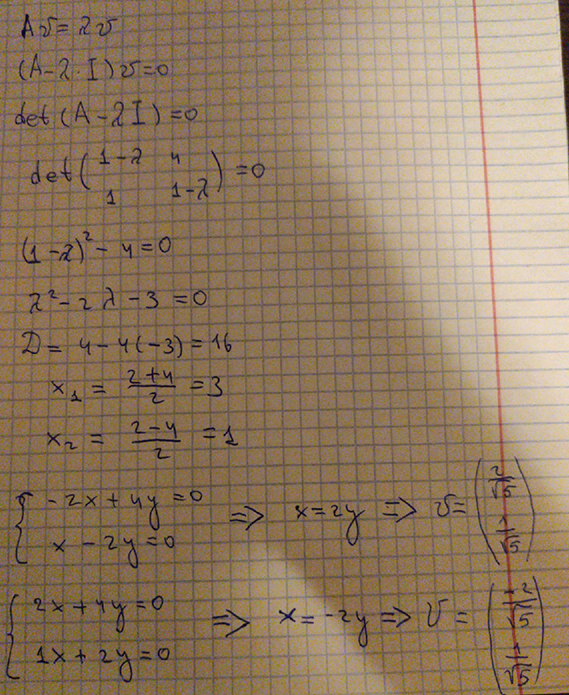 Av = λv
(A - λ·I)v = 0
det(A - λI) = 0
det( 1-λ 4
1 1-λ ) = 0
(1-λ)² - 4 = 0
λ² - 2λ - 3 = 0
D = 4 - 4(-3) = 16
x₁ = (2+4)/2 = 3
x₂ = (2-4)/2 = 1
{ -2x + 4y = 0
x - 2y = 0 ⇒ x = 2y ⇒ v = ( 2/√5
1/√5 )
{ 2x + 4y = 0
1x + 2y = 0 ⇒ x = -2y ⇒ v = ( -2/√5
1/√5 )